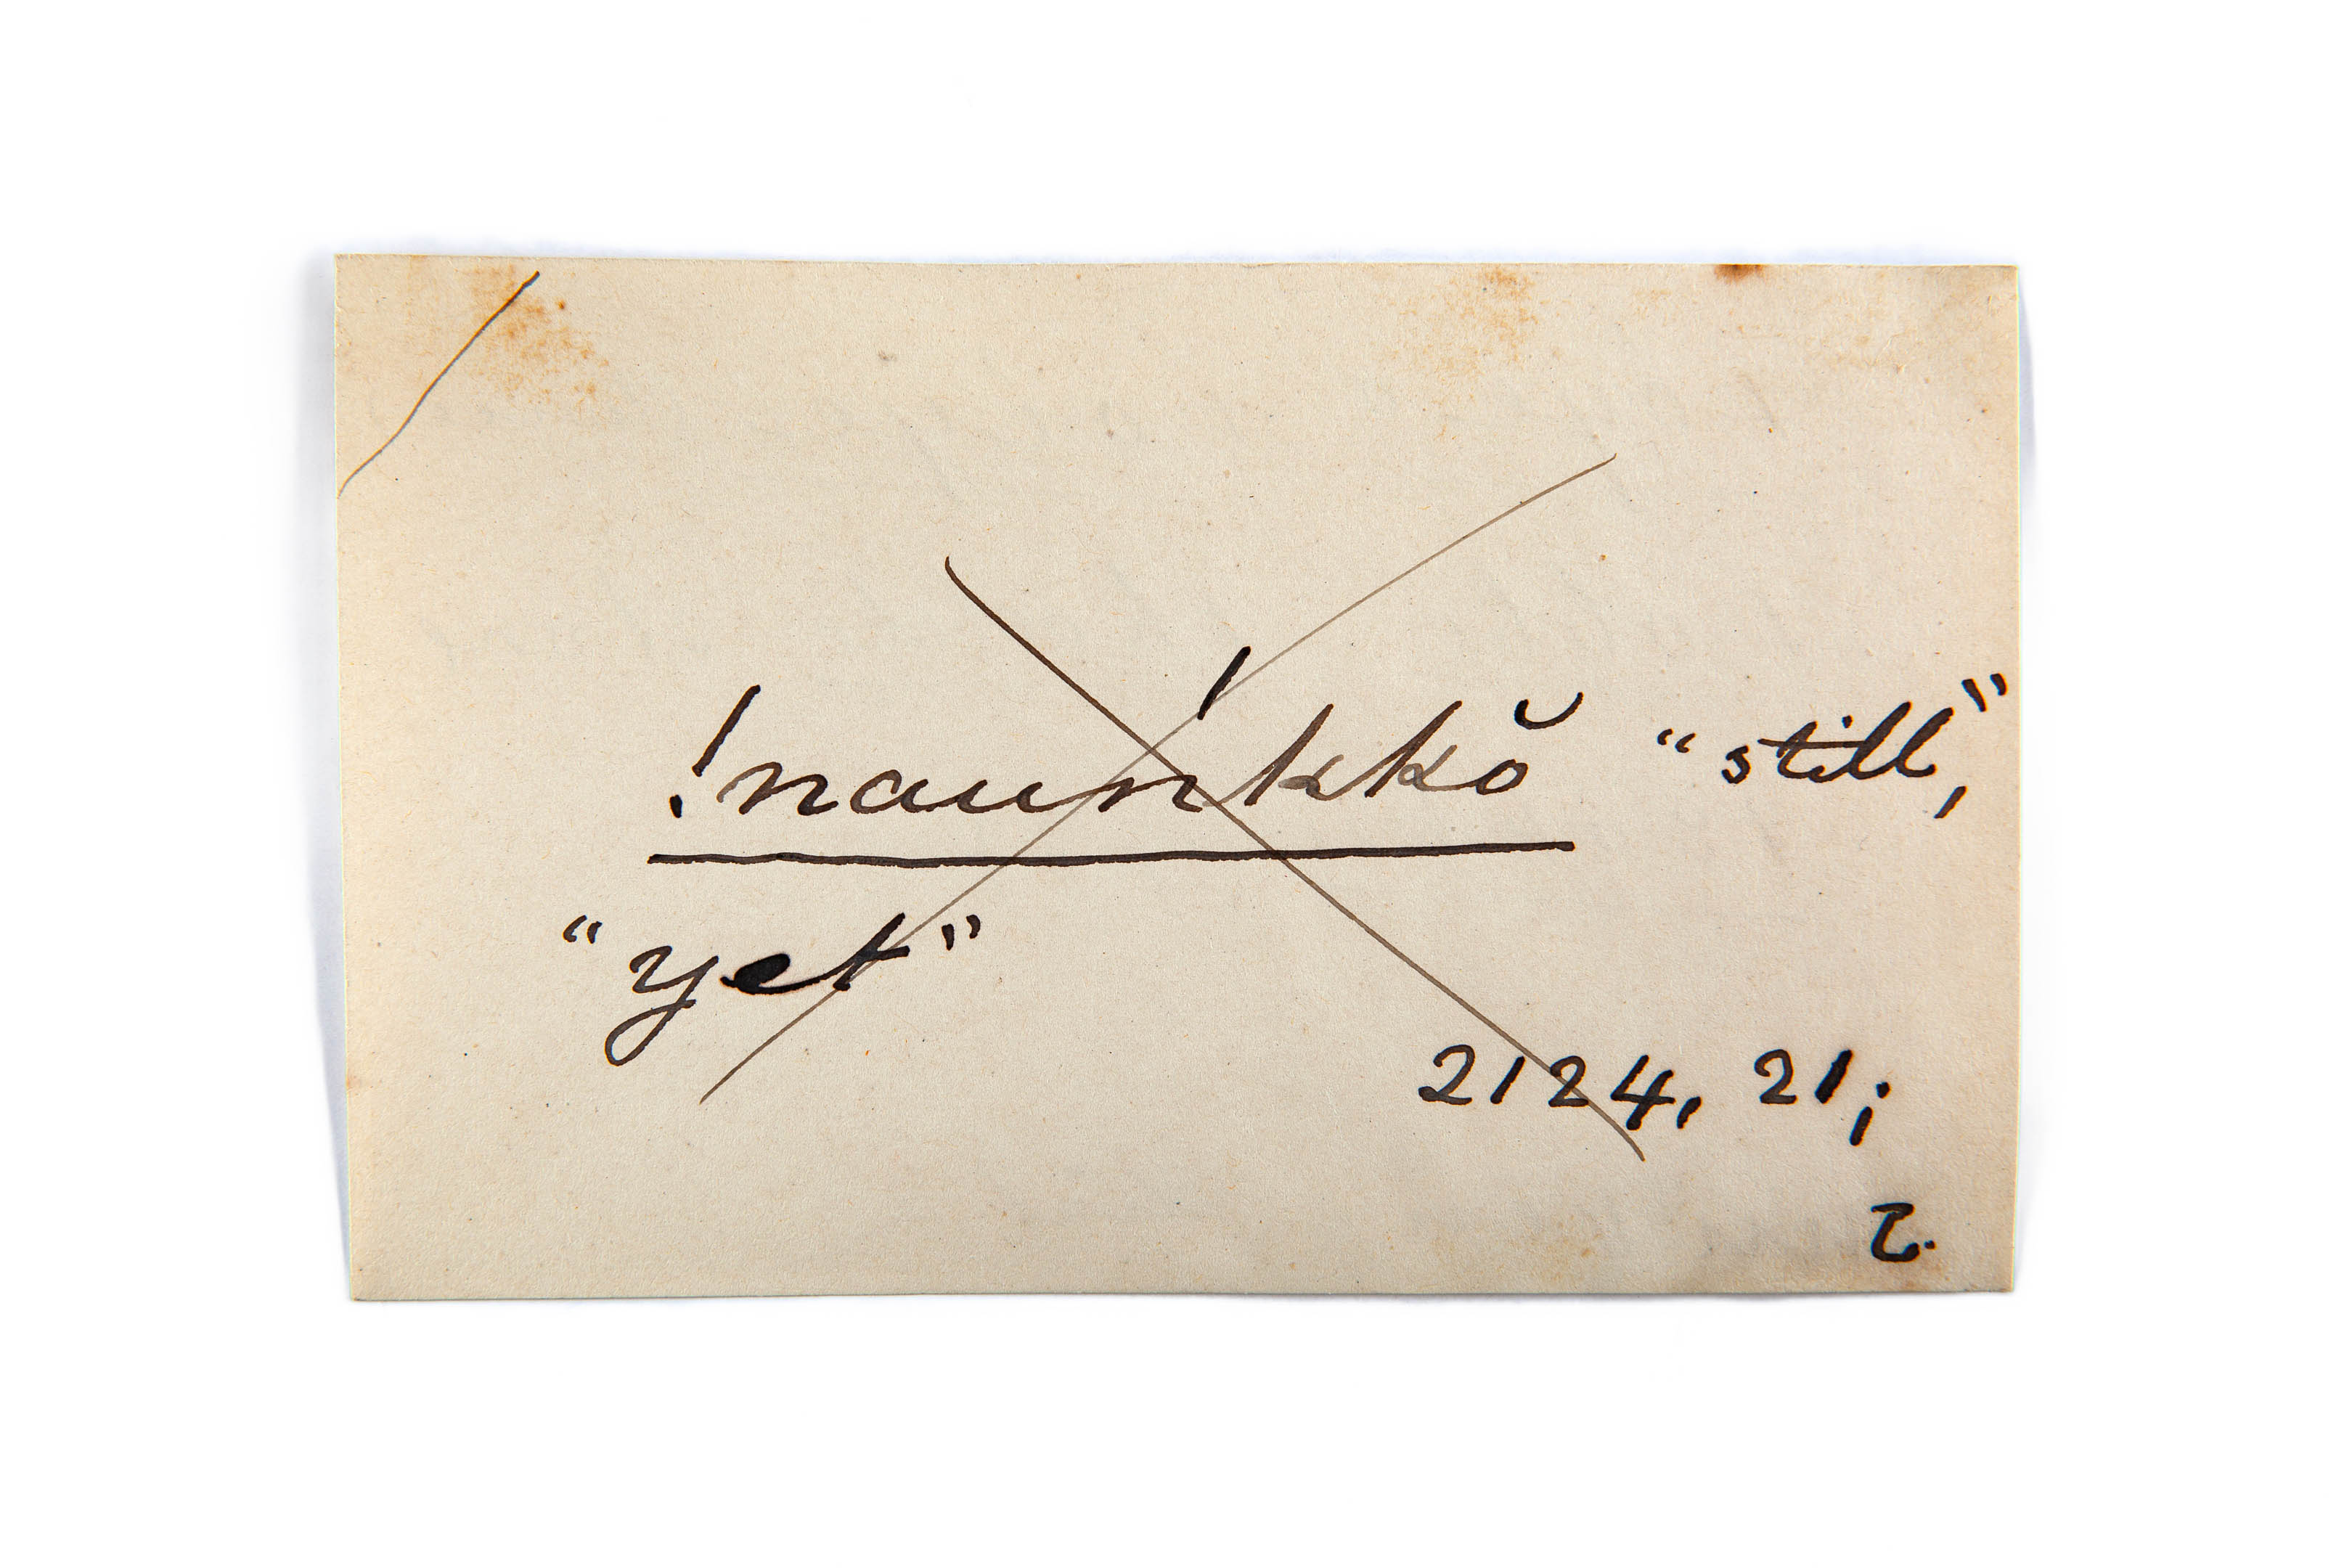 !nauńkkŏ “still,”
“yet”
2124, 21;